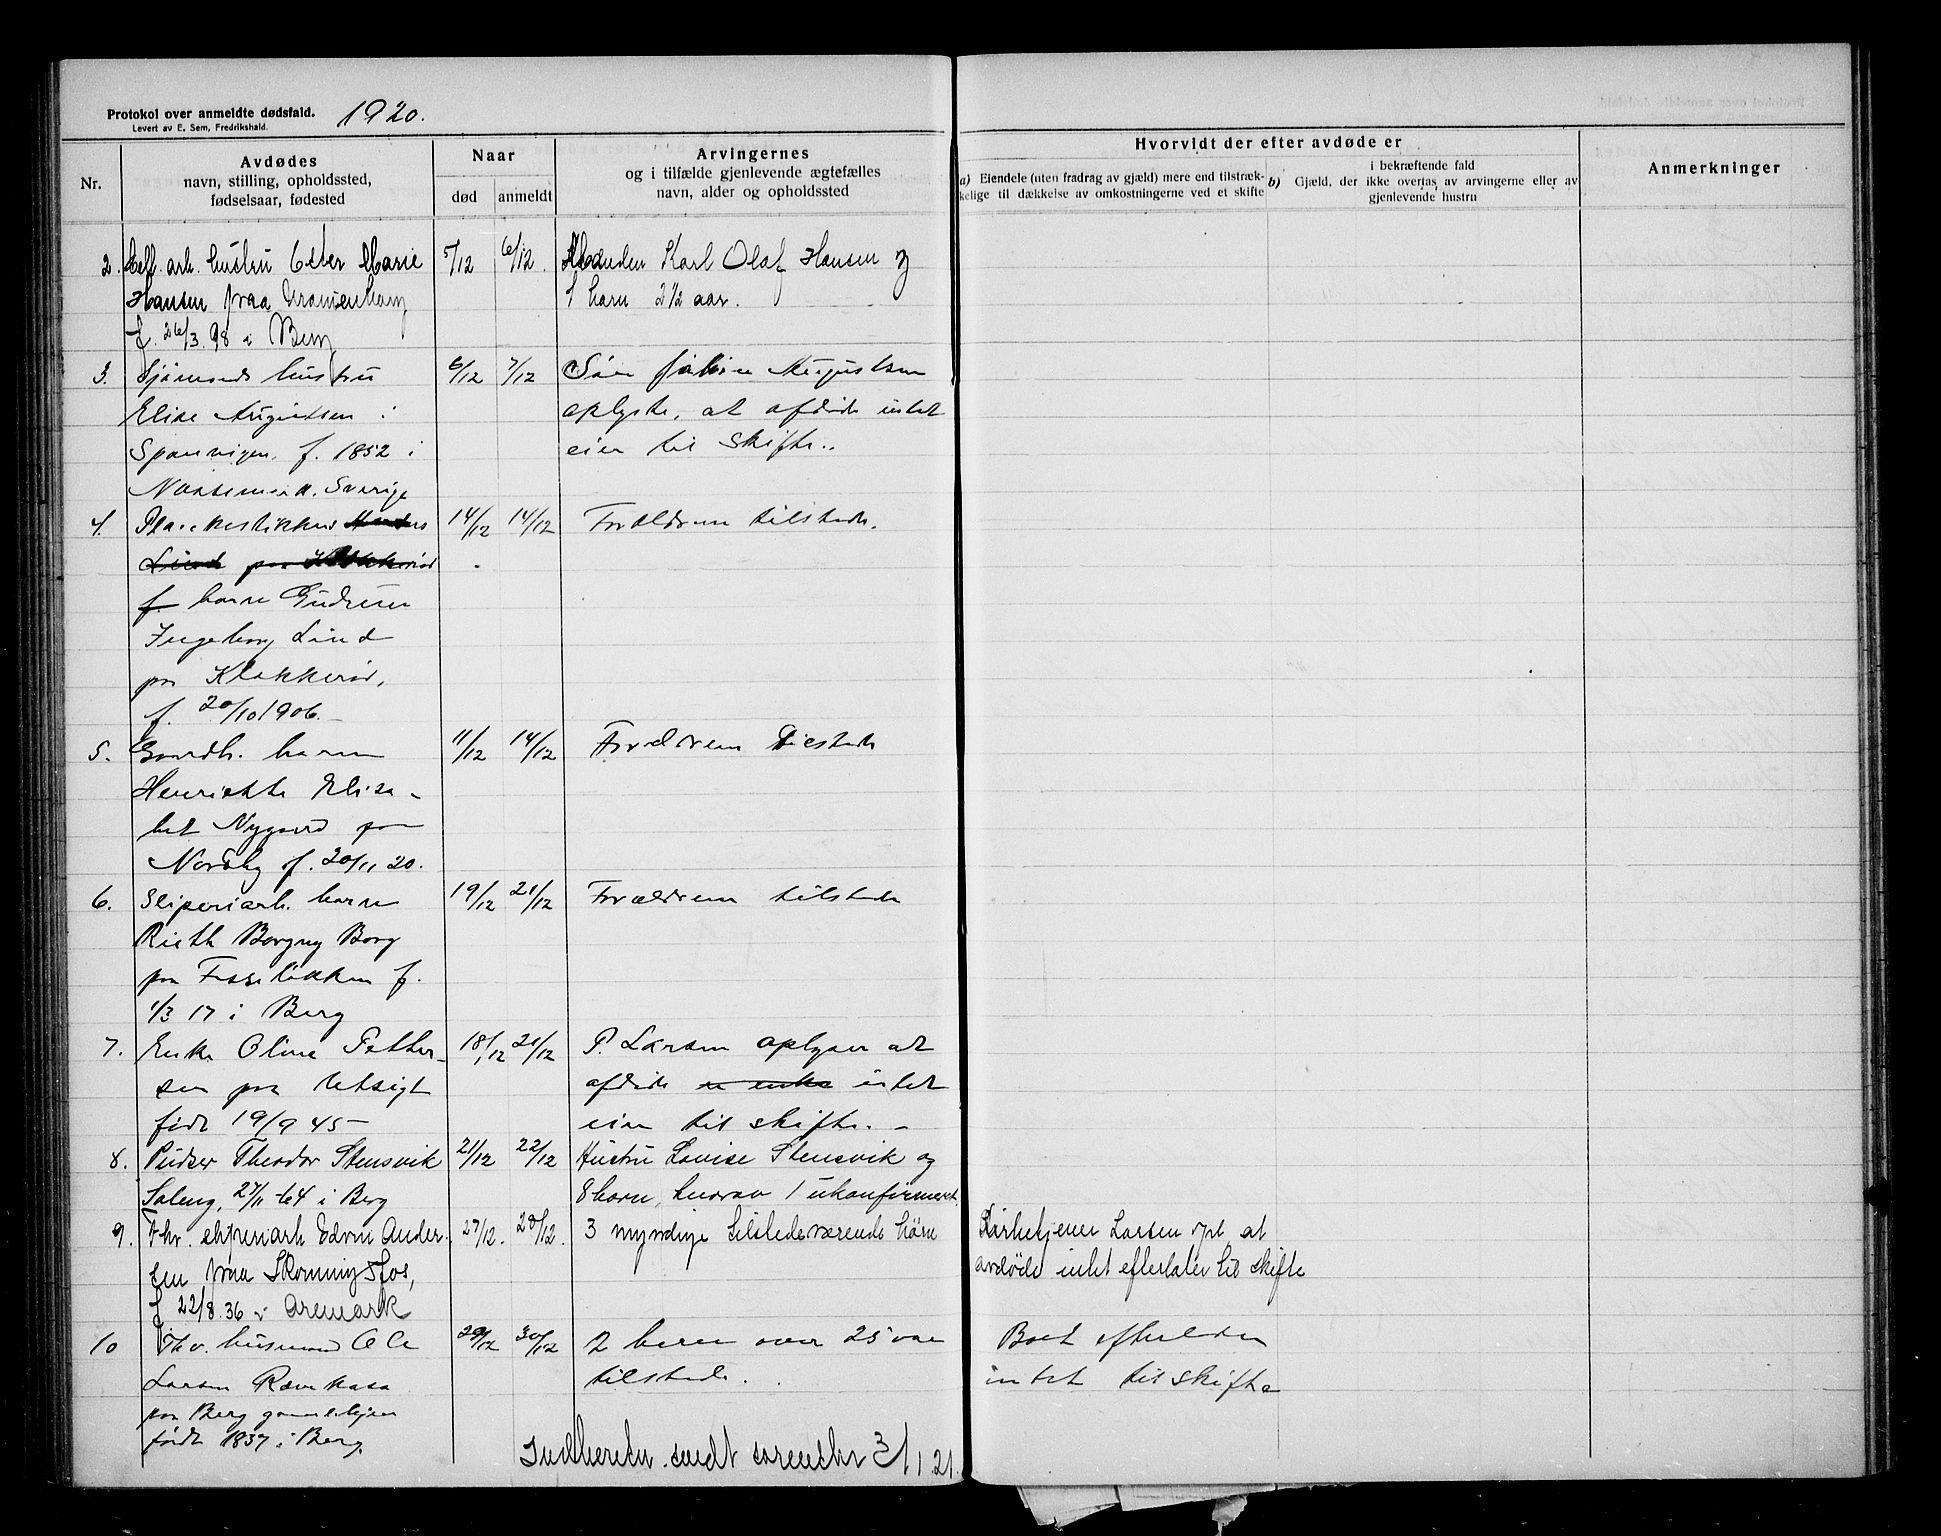 Protokol over anmeldte dødsfald. 1920.
Levert av E. Sem, Fredrikshald.
Nr.
Avdødes
navn, stilling, opholdssted,
fødselsaar, fødested
Naar
død
anmeldt
Arvingernes
og i tilfælde gjenlevende ægtefælles
navn, alder og opholdssted
Hvorvidt der efter avdøde er
a) Eiendele (uten fradrag av gjæld) mere end tilstræk-
kelige til dækkelse av omkostningerne ved et skifte
b) Gjæld, der
i bekræftende fald
ikke overtas av arvingerne eller av
gjenlevende hustru
Anmerkninger
2. Cell. arb. hustru Ester Marie
Hansen paa
f. 26/3 98 i Berg
5/12 6/12.
Manden Karl Olaf Hansen og
1 barn 2 1/2 aar.
3. Sjømands hustru
Elise Augustsen i
Sponvigen. f. 1852 i
Sverige
6/12 7/12
Augustsen
oplyste, at afdøde intet
eier til skifte.
4.
Lind paa Klokkerød
f. barn Gudrun
Ingeborg Lind
paa Klokkerød,
f. 20/10 1906.
14/12 14/12
Forældrene tilstede.
5. Gaardb. barn
Henriette Elisa-
bet Nygaard paa
Nordby f. 20/11 20.
11/12 14/12
Forældrene tilstede
6. Sliperiarb. barn
Ruth Borgny Borg
paa Tisselikken f.
1/3 17 i Berg
19/12 21/12
Forældrene tilstede
7. Enke Oline Petter-
sen paa Utsigt
født 19/9 45
18/12 21/12
P. Larsen oplyser at
afdøde en enke intet
eier til skifte.
8. Pudser Theodor Stensvik
Saleng, 27/11 64 i Berg
21/12 22/12
Hustru Lovise Stensvik og
8 barn, hvorav 1 ukonfirmeret.
9. Fhv. sliperiarb Edvin Ander-
sen paa Skonningsfos,
f 22/8. 36 i Aremark
27/12. 28/12.
3 myndige tilstedeværende børn
Kirketjener Larsen opl. at
avdøde intet efterlater til skifte
10 Fhv. husmand Ole
Larsen Rævekasa
paa Berg gamlehjem
født 1837 i Berg.
29/12 30/12
2 barn over 25 aar
tilstede.
Boet efterlater
intet til skifte
Indberetn. sendt sorenskr 3/1 21.